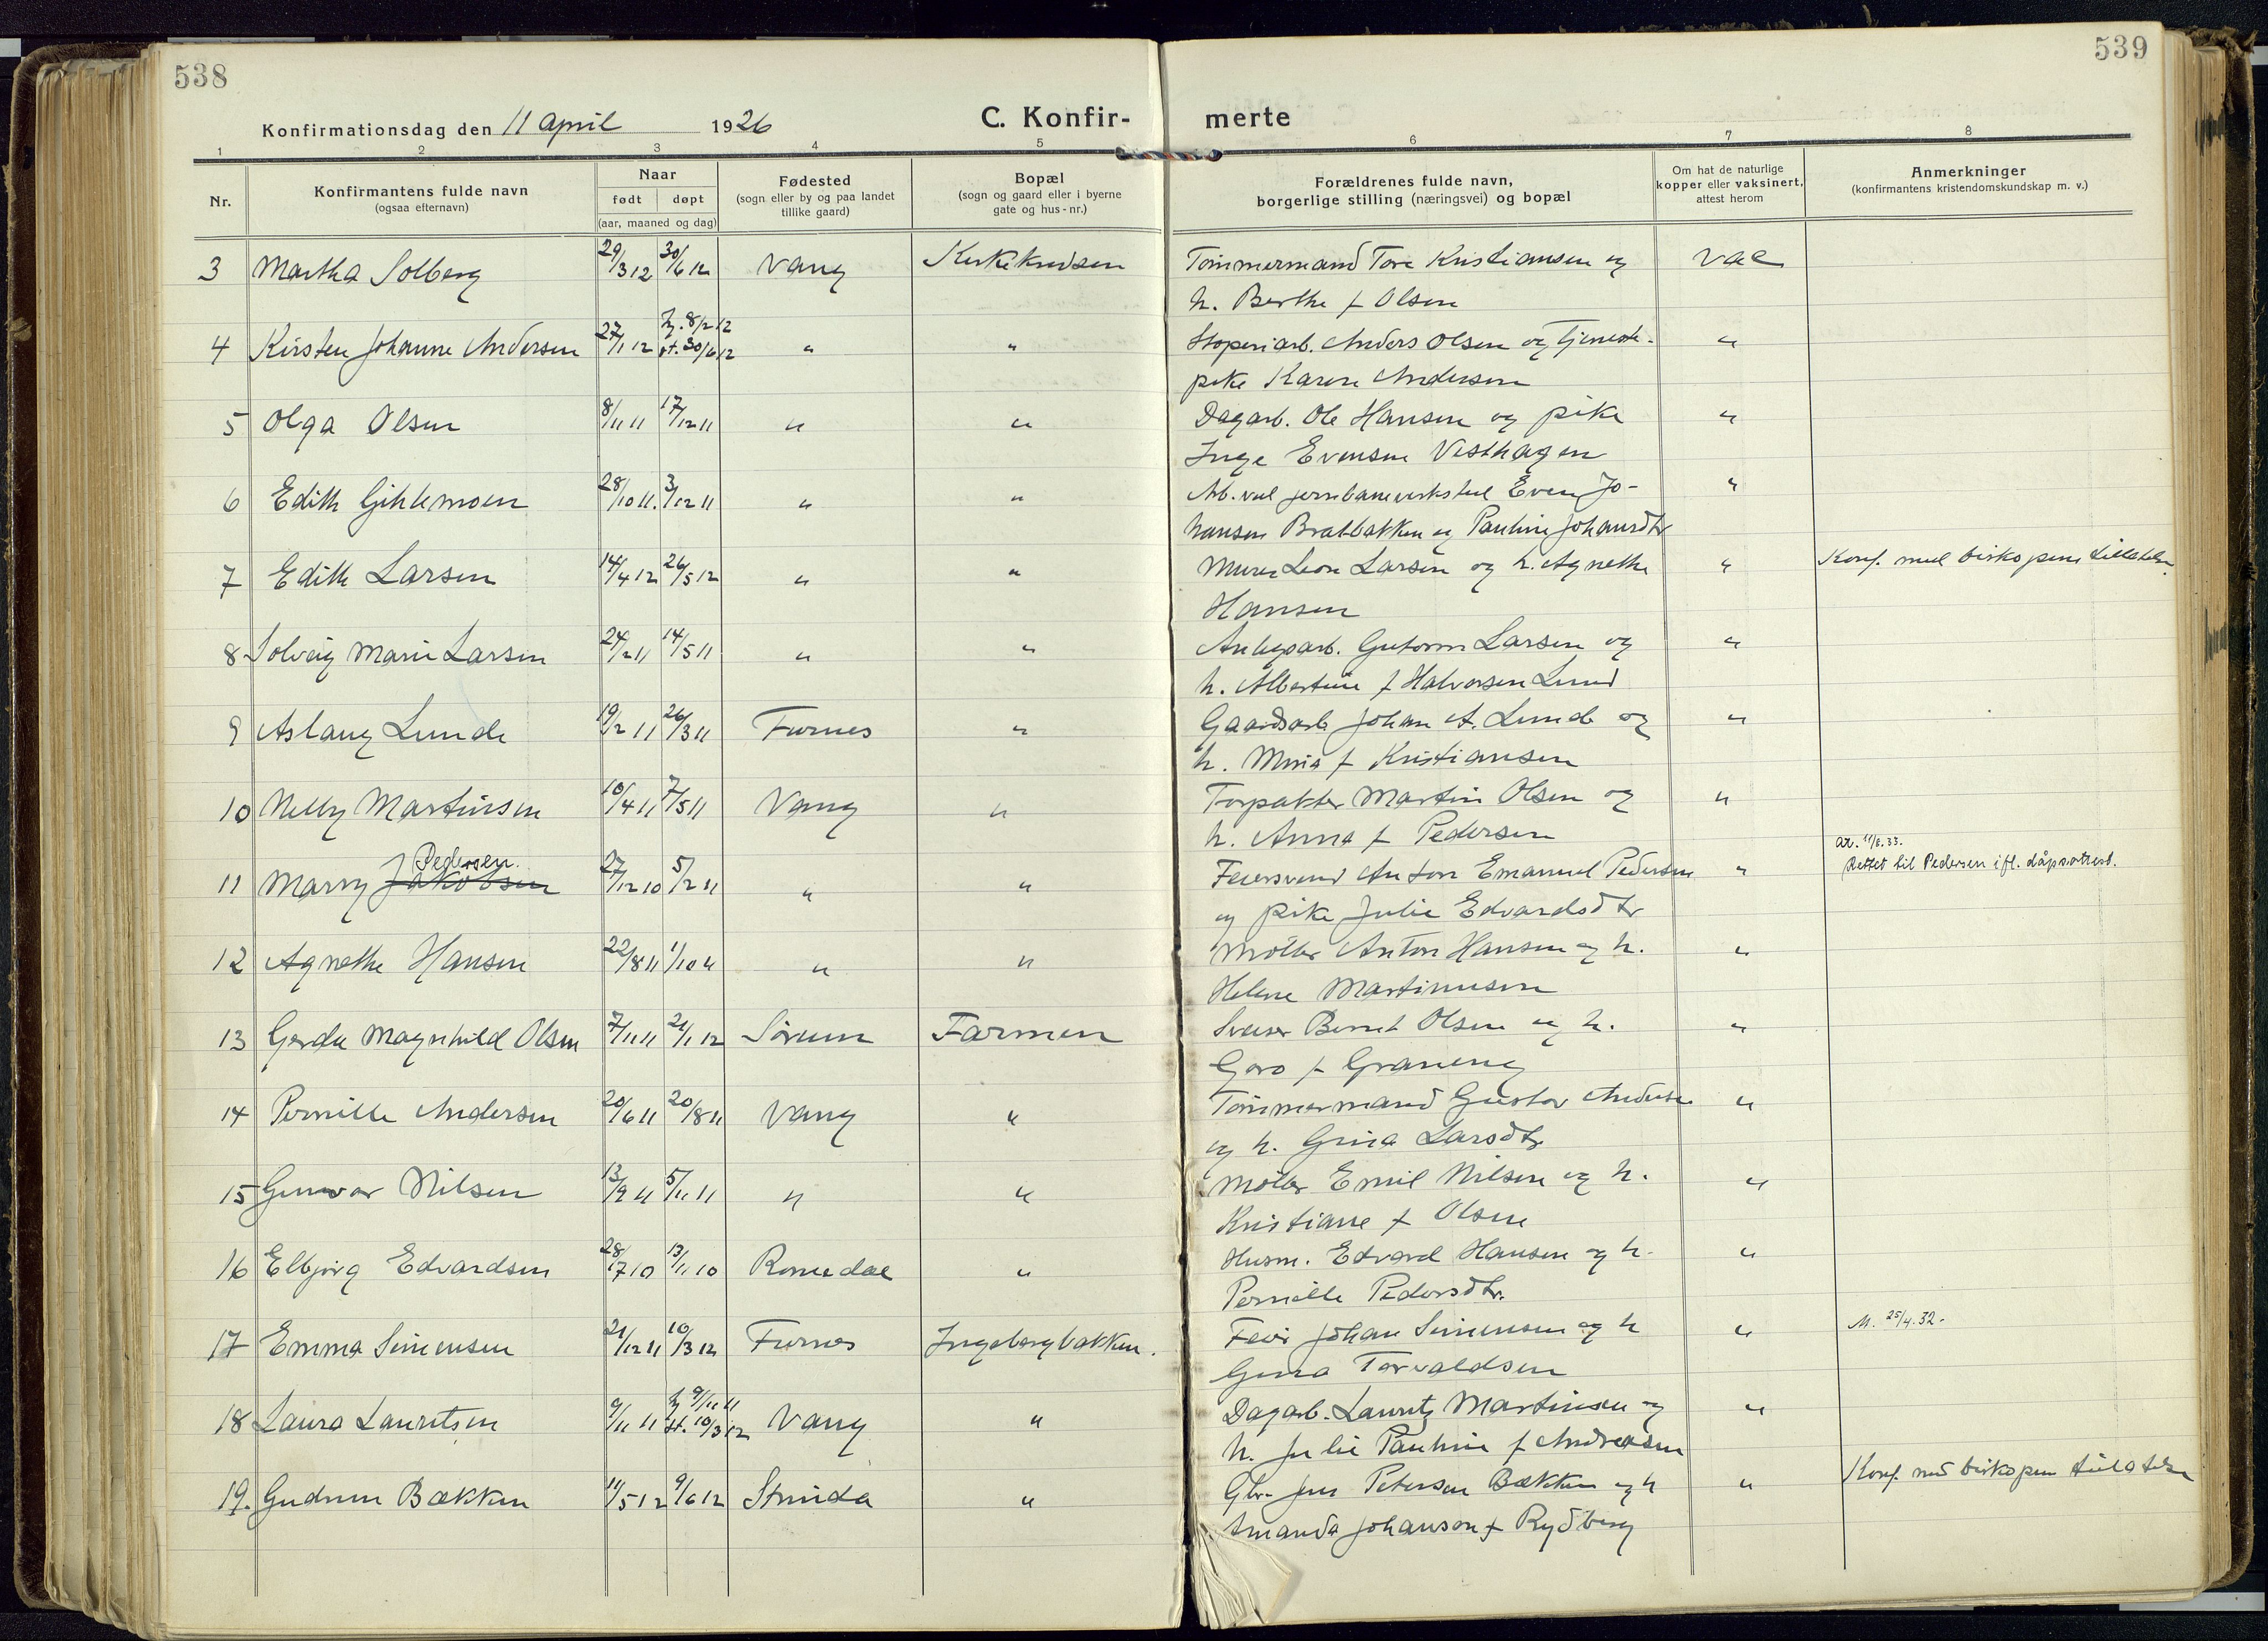 538
539
Konfirmationsdag den 11 april 1926
C. Konfir-
merte
1 2 3 4 5 6 7 8
Nr.
Konfirmantens fulde navn
(ogsaa efternavn)
Naar
født døpt
(aar, maaned og dag)
Fødested
(sogn eller by og paa landet
tillike gaard)
Bopæl
(sogn og gaard eller i byerne
gate og hus-nr.)
Forældrenes fulde navn,
borgerlige stilling (næringsvei) og bopæl
Om hat de naturlige
kopper eller vaksinert,
attest herom
Anmerkninger
(konfirmantens kristendomskundskap m. v.)
3 Martha Solberg 29/3 12 30/6 12 Vang Tømmermand Tore Kristiansen og vac
h. Berthe f Olsen
4 Kirsten Johanne Andersen 27/1 12 hj. 8/2 12 st. 30/6 12 " " Anders Olsen og tjeneste- "
pike Karen Andersen
5 Olga Olsen 8/11 11 17/12 11 " " Dagarb. Ole Hansen og pike "
Inge Evensen Vesthagen
6 Edith Gihlemoen 28/10 11. 3/12 11 " " Arb. ved jernbaneverksted Even Jo- "
hansen Bratbakken og Pauline Johansdtr
7 Edith Larsen 14/4 12 26/5 12 " " Murer Leon Larsen og h. Agnethe " Konf. med biskopens tillatelse
Hansen
8 Solveig Marie Larsen 24/2 11 14/5 11 " " Anlegsarb. Gutorm Larsen og "
h. Albertine f Halvorsen Lund
9 Aslaug Lunde 19/2 11 26/3 11 Furnes " Gaardsarb Johan A. Lunde og "
h. Mina f Kristiansen
10 Nelly Martinsen 10/4 11 7/5 11 Vang " Torpakter Martin Olsen og "
h. Anna f Pedersen
11 Marry Jakobsen Pedersen. 27/12 10 5/2 11 " " Feiersvend Anton Emanuel Pedersen " av. 11/8.33.
Rettet til Pedersen ifl. dåpsattest.
og pike Julie Edvardsdtr
12 Agnethe Hansen 22/8 11 1/10 11 " " Møller Anton Hansen og h. "
Helene Martinusen
13 Gerda Magnhild Olsen 7/11 11 21/1 12 Sørum Farmen Sveiser Bernt Olsen og h. "
Goro f Graneng
14 Pernille Andersen 20/6 11 20/8 11 Vang " Tømmermand Gustav Andersen "
og h. Grina Larsdtr
15 Gunvor Nilsen 13/9 11 5/11 11 " " Møller Emil Nilsen og h. "
Kristiane f Olsen
16 Elbjørg Edvardsen 28/7 10 13/11 10 Romedal " Husm. Edvard Hansen og h. "
Pernille Pedersdtr.
17 Emma Simensen 21/12 11 10/3 12 Furnes Ingebergbakken. Feier Johan Simensen og h " M. 25/4.32.
Gina Torvaldsen
18 Laura Lauritsen 9/11 11 hj 9/11 11 st. 10/3 12 Vang " Dagarb. Lauritz Martinsen og "
h. Julie Pauline f Andreasen
19. Gudrun Bækken 11/5 12 9/6 12 Strinda " Gbr. Jens Petersen Bækken og h " Konf. med biskopens tillatelse
Amanda Johanson f Rydberg